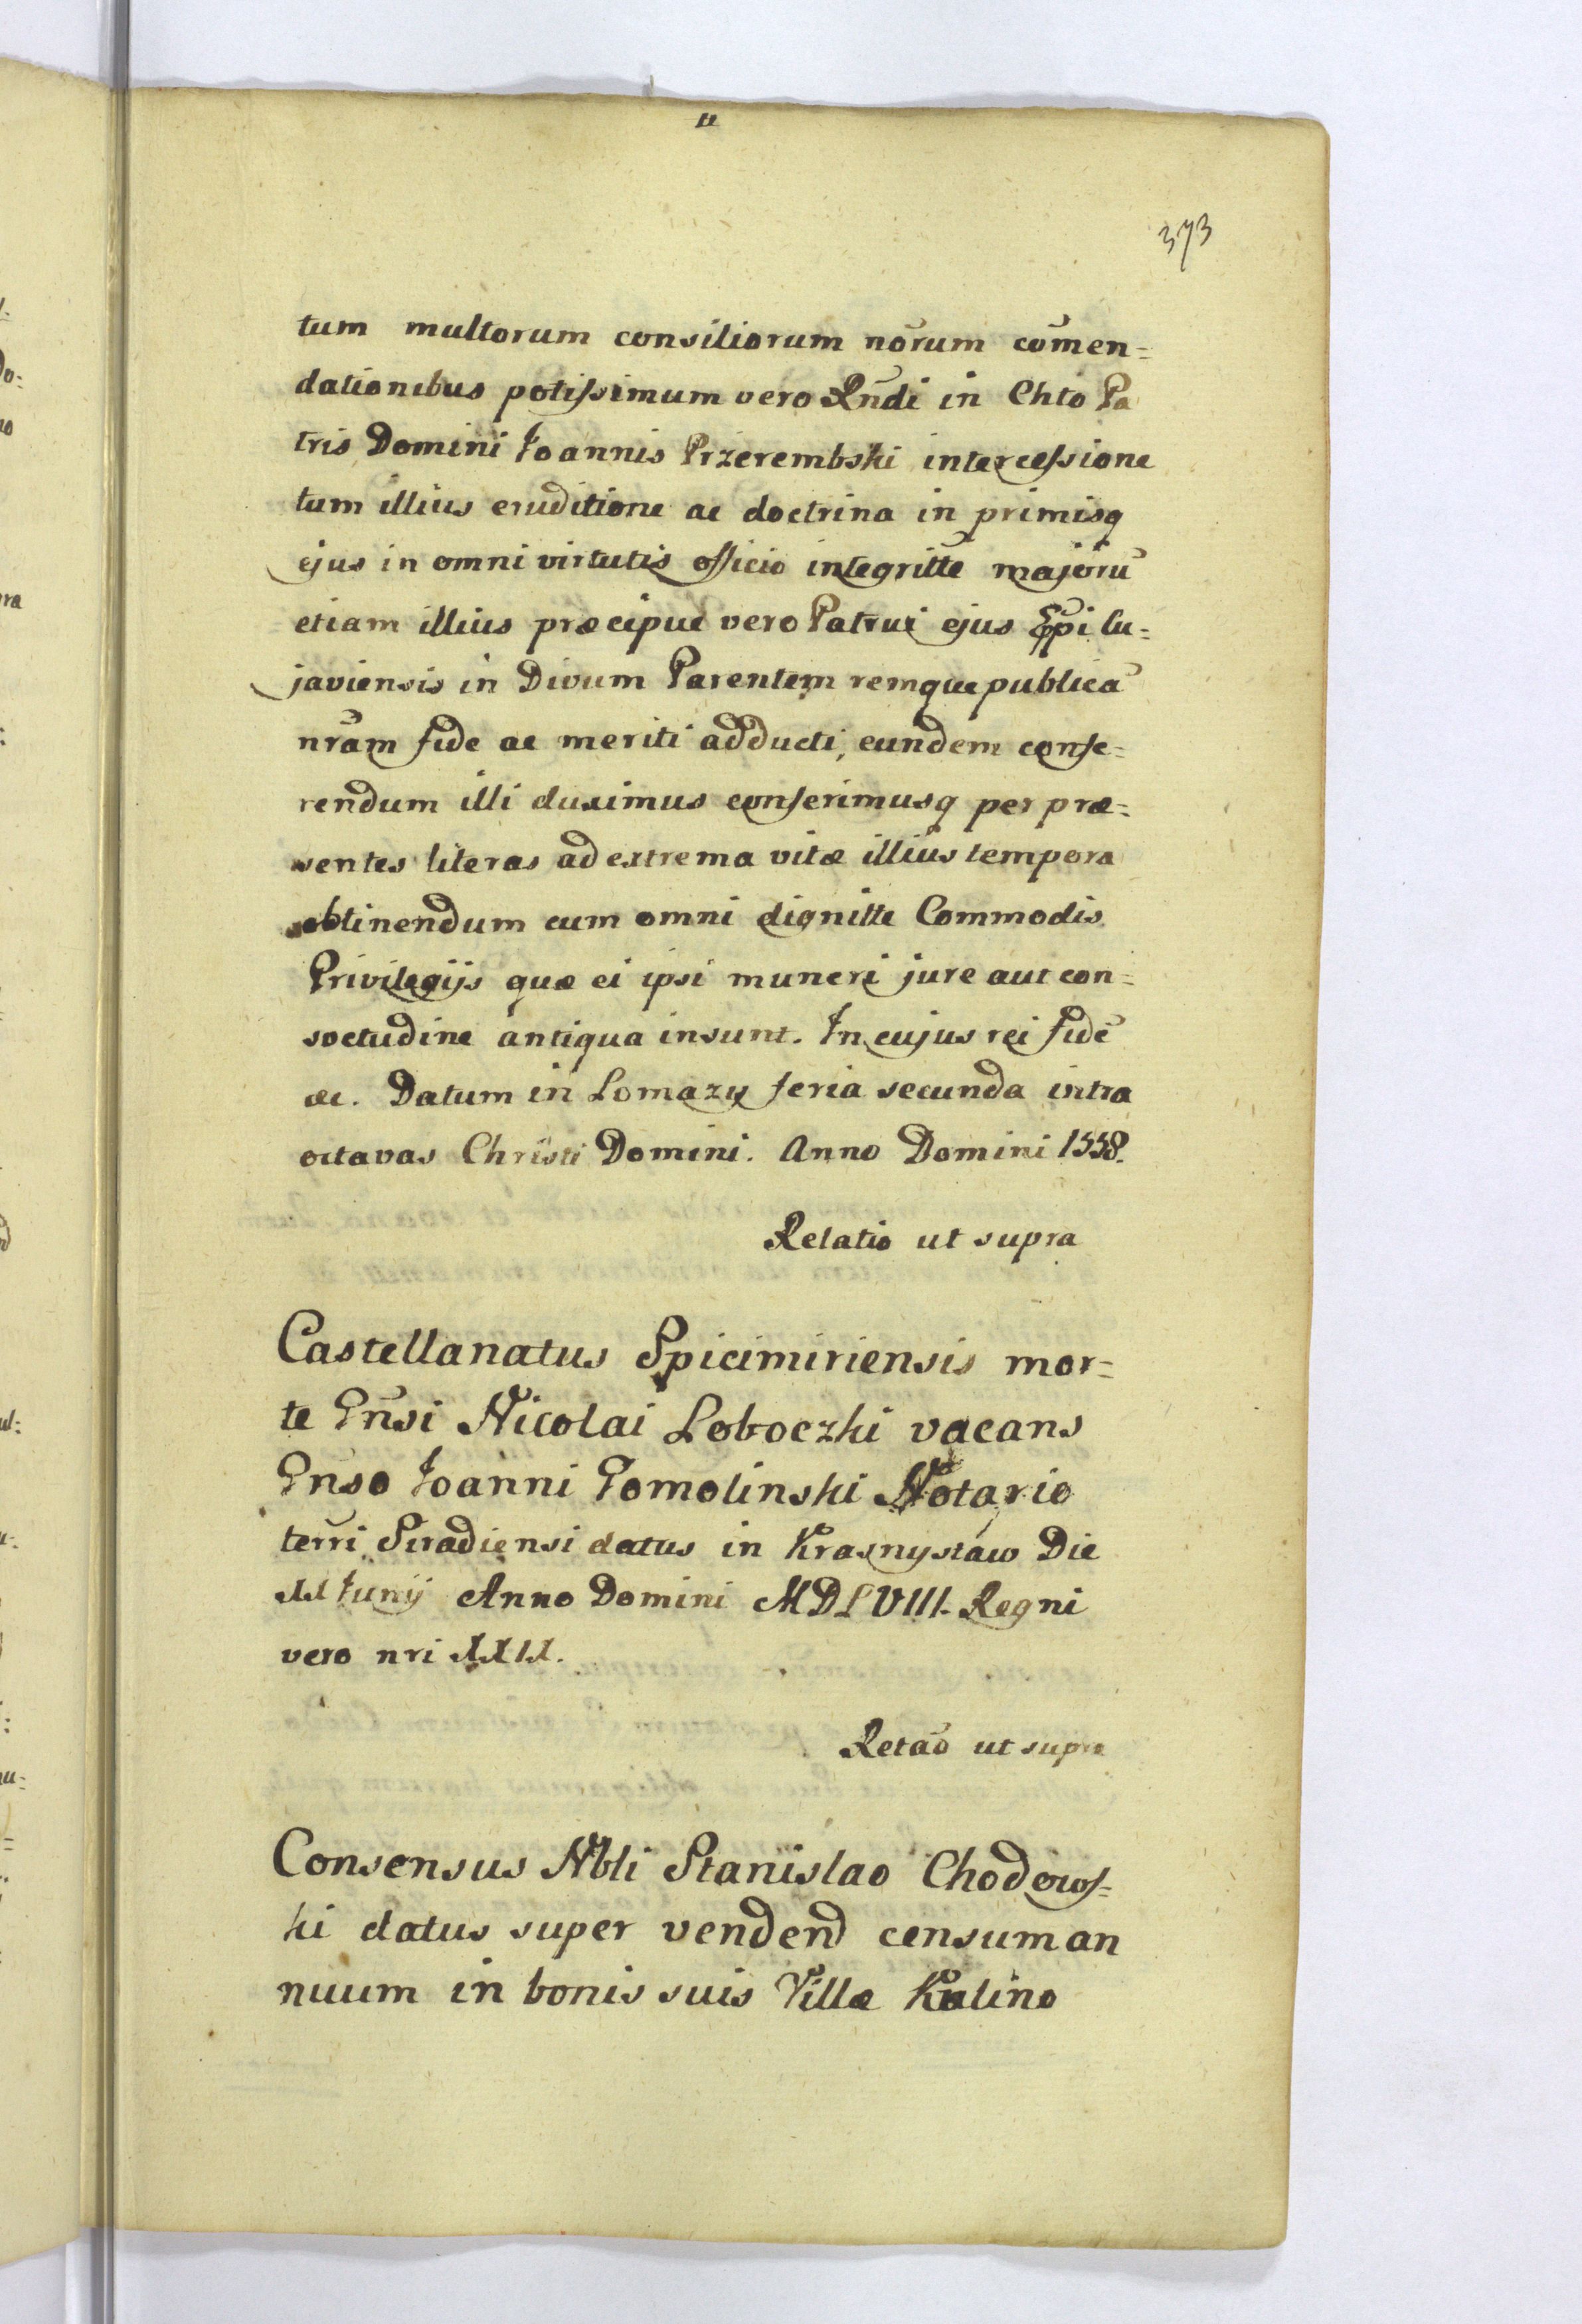 373
tum multorum consiliorum nõrum cõmen=
dationibus potissimum vero Rñdi in Chto Pa
tris Domini Joannis Przerembski intercessione
tum illius eruditione ac doctrina in primisq
ejus in omni virtutis officio integritte majorũ
etiam illius præcipue vero Patrui ejus Eppi Cu=
javiensis in Divum Parentem remque publicã
nrãm fide ac meriti adducti, eundem confe=
rendum illi duximus conferimusq per præ=
sentes literas ad extrema vitæ illius tempora
obtinendum cum omni dignitte Commodis
Privilegijs quæ ei ipsi muneri jure aut con=
svetudine antiqua insunt. In cujus rei fidẽ
etc. Datum in Lomazy feria secunda intra
octavas Christi Domini. Anno Domini 1558.
Relatio ut supra
Castellanatus Spicimiriensis mor=
te Gñsi Nicolai Loboczki vacans
Gnso Joanni Pomolinski Notario
terri Siradiensi datus in Krasnystaw Die
XX Junij Anno Domini MDLVIII. Regni
vero nri XXIX.
Relaõ ut supra
Consensus Nbli Stanislao Chodows=
ki datus super vendend censum an
nuum in bonis suis Villæ Kalino